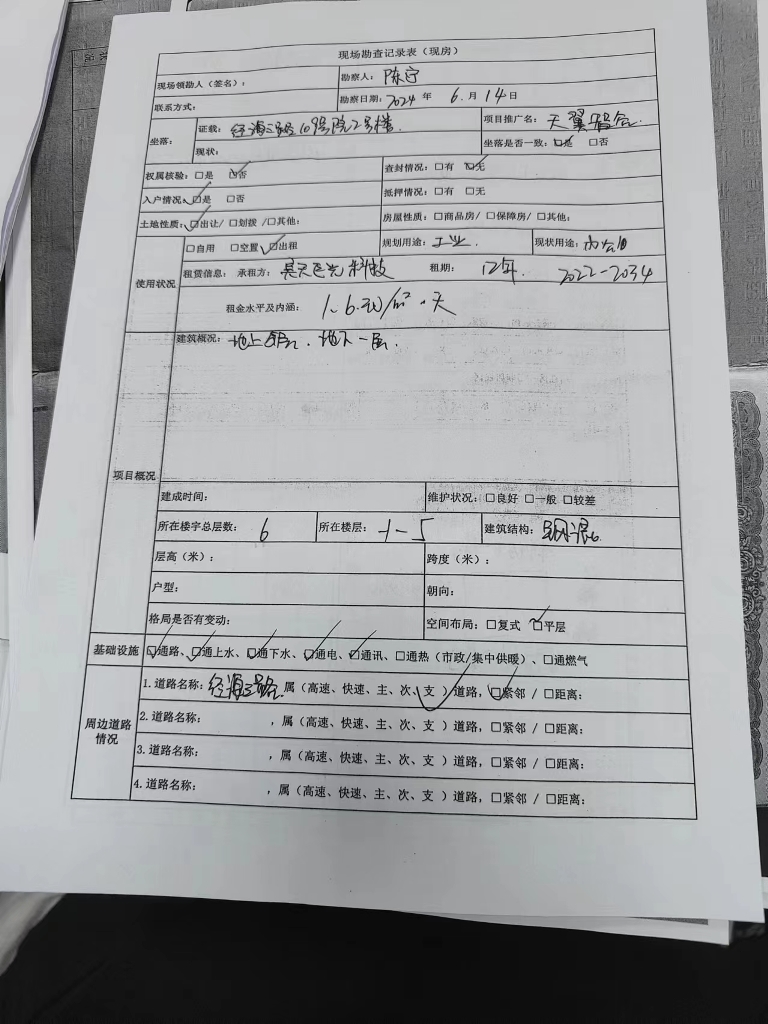 现场勘查记录表（现房）
现场领勘人（签名）： 勘察人：陈宁
联系方式： 勘察日期：2024 年 6 月 14 日
坐落： 证载：经海三路109号院2号楼 项目推广名：天翼智谷
现状： 坐落是否一致：☑是 □否
权属核验：□是 ☑否 查封情况：□有 ☑无
入户情况：☑是 □否 抵押情况：□有 □无
土地性质：☑出让/ □划拨 /□其他： 房屋性质：□商品房/ □保障房/ □其他：
使用状况 □自用 □空置 ☑出租 规划用途：工业 现状用途：办公
租赁信息：承租方： 科技 租期：12年 2022-2034
租金水平及内涵：1.6元/m²·天
项目概况
建筑概况：地上 层、地下一层.
建成时间： 维护状况：□良好 □一般 □较差
所在楼宇总层数：6 所在楼层：-1-5 建筑结构：钢混
层高（米）： 跨度（米）：
户型： 朝向：
格局是否有变动： 空间布局：□复式 ☑平层
基础设施 ☑通路、☑通上水、☑通下水、☑通电、☑通讯、□通热（市政/集中供暖）、□通燃气
周边道路情况
1.道路名称：经海三路，属（高速、快速、主、次、支）道路，☑紧邻 / □距离：
2.道路名称： ，属（高速、快速、主、次、支 ）道路，□紧邻 / □距离：
3.道路名称： ，属（高速、快速、主、次、支 ）道路，□紧邻 / □距离：
4.道路名称： ，属（高速、快速、主、次、支 ）道路，□紧邻 / □距离：